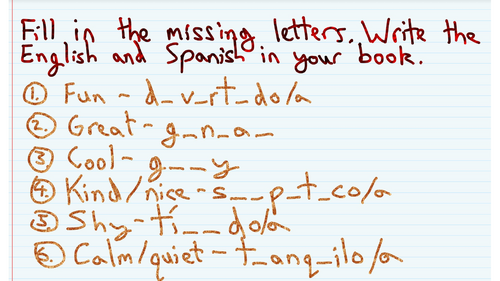 Fill in the missing letters. Write the
English and Spanish in your book.
1. Fun - d_v_rt_do/a
2. Great - g_n_a_
3. Cool - g___y
4. Kind/nice - s__p_t_co/a
5. Shy - tí__do/a
6. Calm/quiet - t_anq_ilo/a